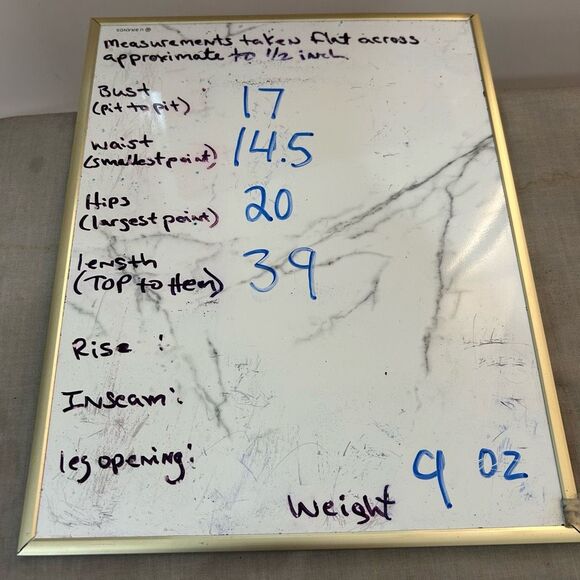 Measurements taken flat across
approximate to 1/2 inch
Bust 17
(pit to pit)
Waist 14.5
(smallest point)
Hips 20
(largest point)
length 39
(TOP to Hem)
Rise :
Inseam:
leg opening:
Weight 9 oz